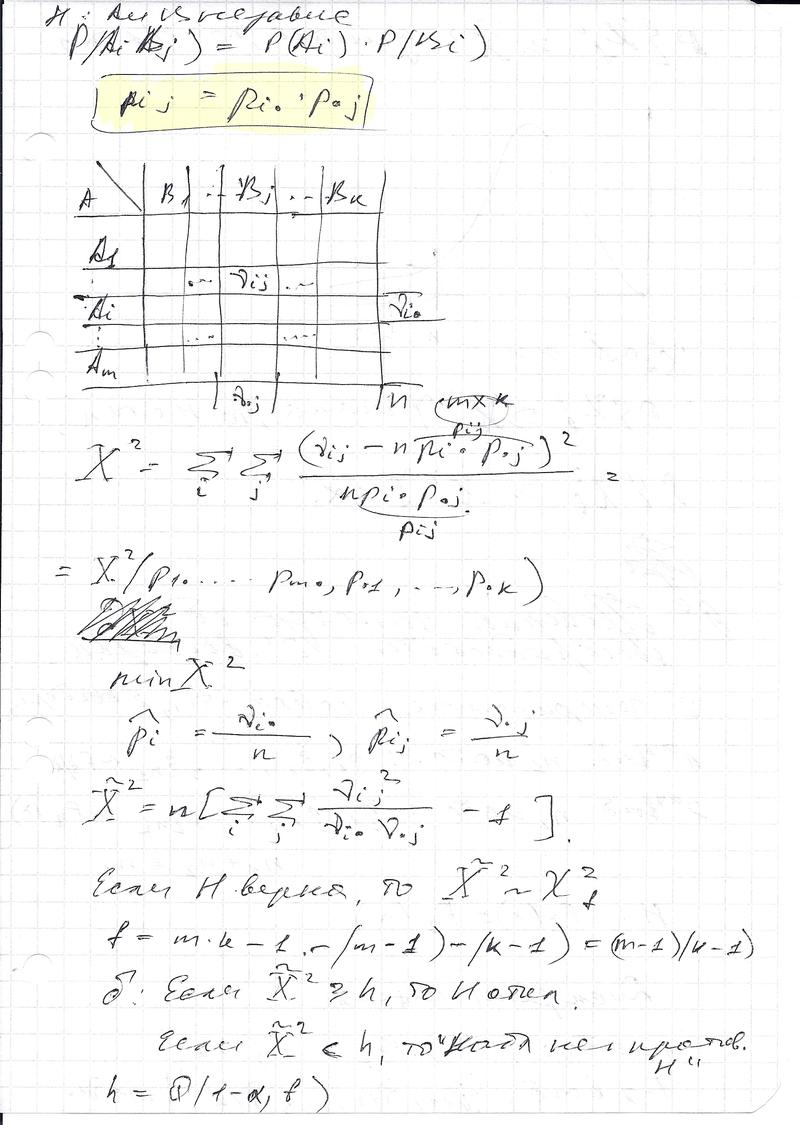 H: A и B независ
P(Ai Bj) = P(Ai) · P(Bi)
pij = pi• · p•j
A B1 ... Bj ... Bk
A1
... νij ...
Ai νi•
... ...
Am
ν•j n m×k
X² = Σi Σj (νij − n pi• p•j)² / n pi• p•j =
pij
pij
= X²(p1•..... pm•, p•1, ..., p•k)
min X²
p̂i = νi• / n , p̂ij = ν•j / n
X̃² = n[Σi Σj νij² / νi• ν•j − 1].
Если H верна, то X̃² ~ χ²f
f = m·k − 1 − (m−1) − (k−1) = (m−1)(k−1)
δ: Если X̃² ≥ h, то H откл.
Если X̃² < h, то "
H"
h = Q(1−α, f)